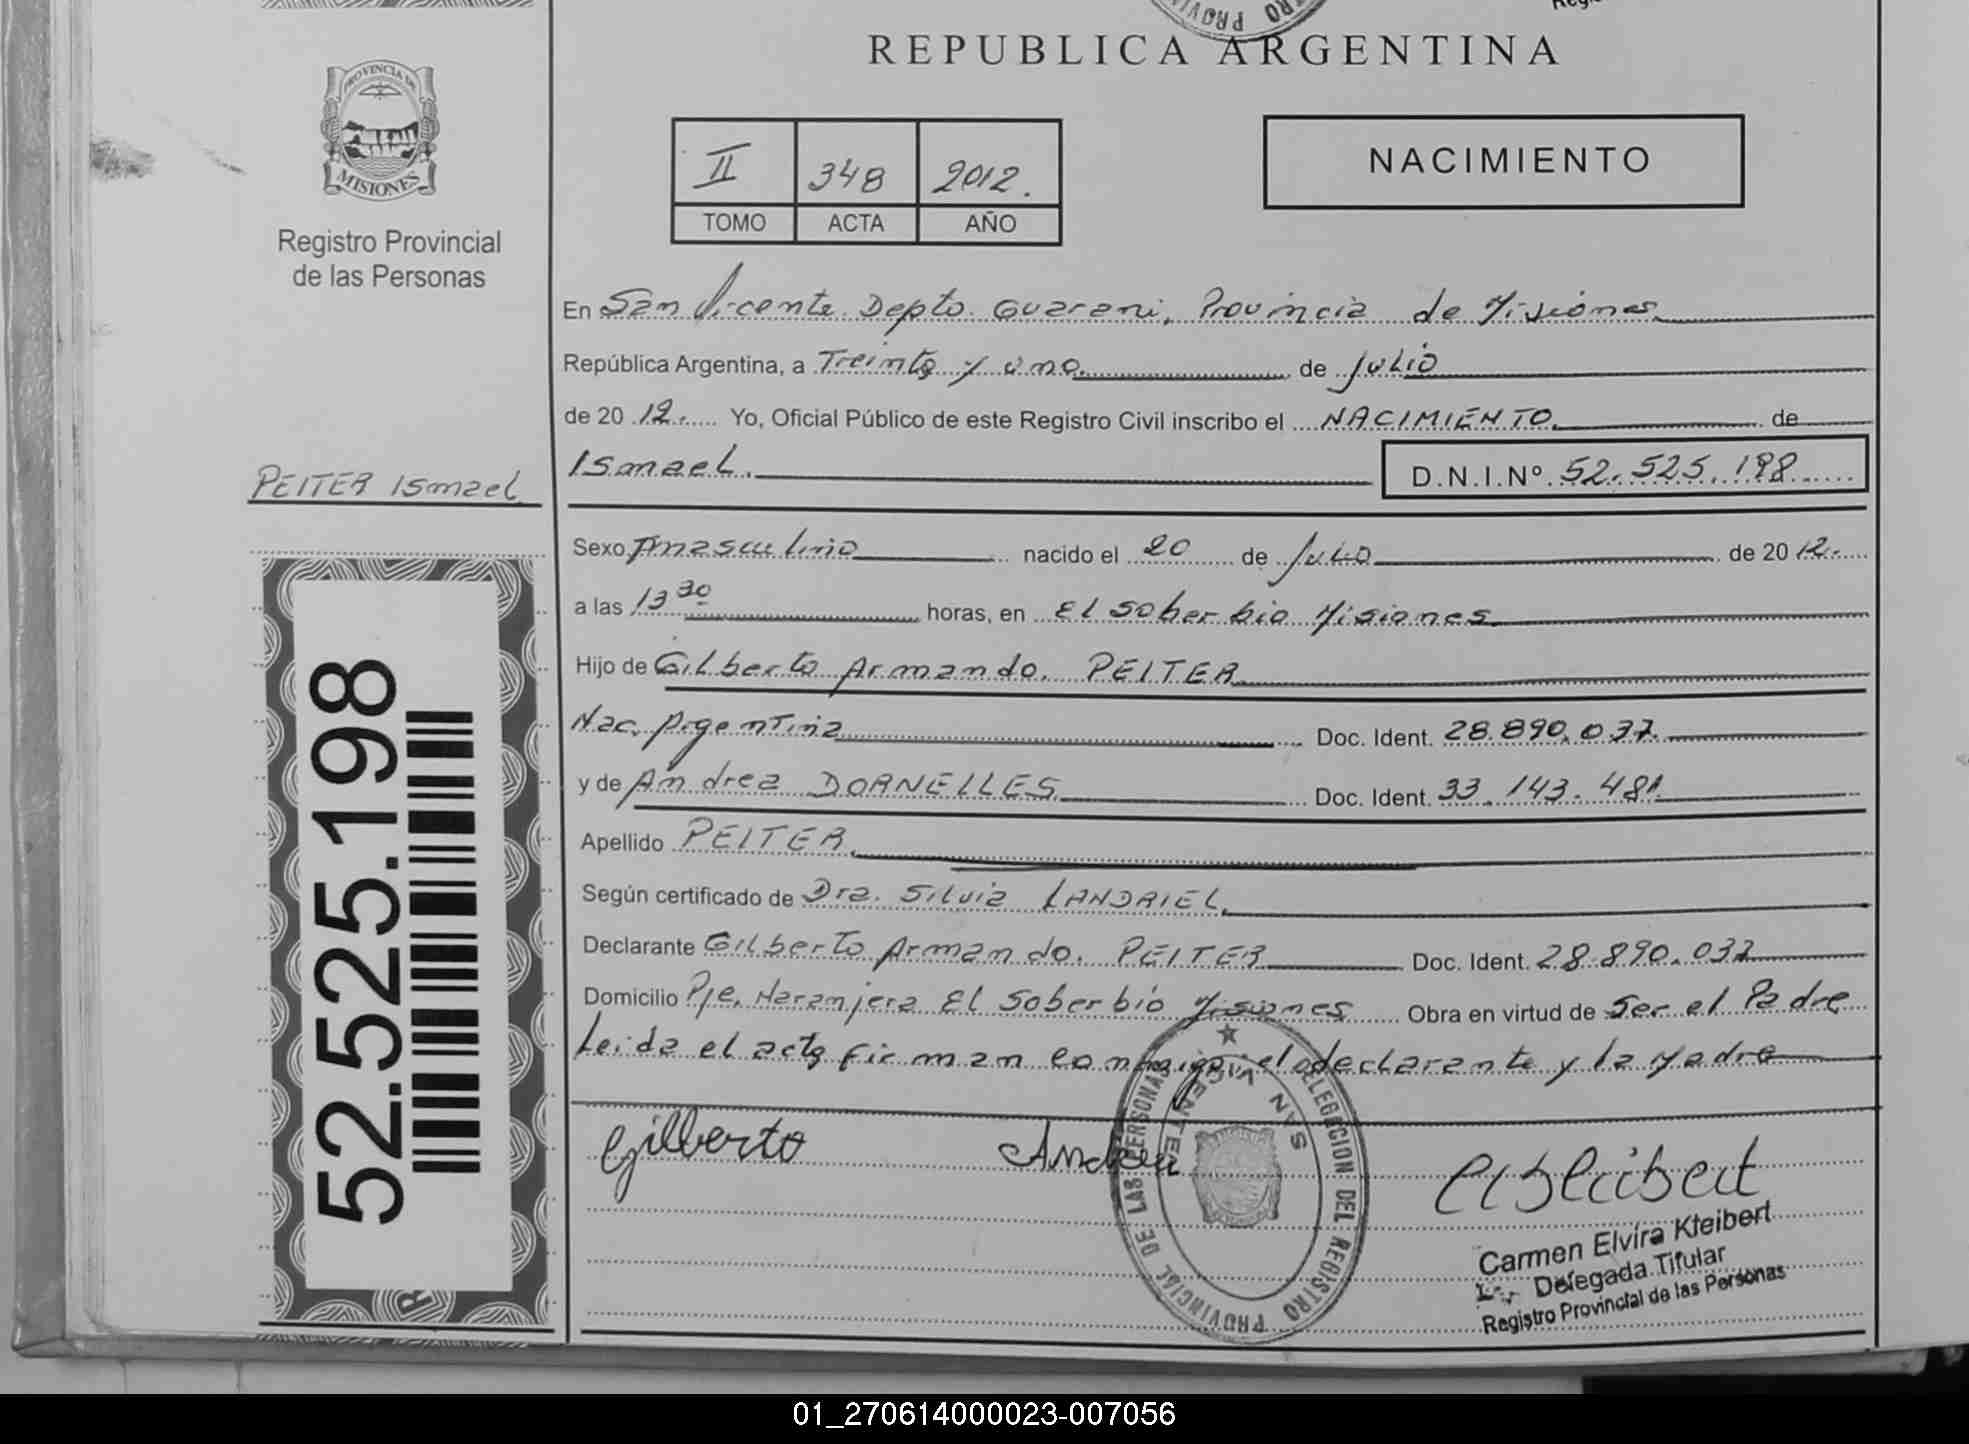 REPUBLICA ARGENTINA
PROVINCIA DE
MISIONES
Registro Provincial
de las Personas
II 348 2012.
TOMO ACTA AÑO
NACIMIENTO
En San Vicente Depto. Guarani, Provincia de Misiones
República Argentina, a Treinta y uno. de Julio
de 20 12. Yo, Oficial Público de este Registro Civil inscribo el NACIMIENTO. de
PEITER Ismael
Ismael. D.N.I.Nº. 52.525.198
Sexo masculino nacido el 20 de Julio de 20 12.
a las 13 30 horas, en El Soberbio Misiones
Hijo de Gilberto Armando. PEITER
Nac. Argentina Doc. Ident. 28.890.037.
y de Andrea DORNELLES Doc. Ident. 33.143.481
Apellido PEITER.
Según certificado de Dra. Silvia LANDRIEL.
Declarante Gilberto Armando. PEITER Doc. Ident. 28.890.037
Domicilio Pje. Naranjera El Soberbio Misiones Obra en virtud de Ser el Padre
Leida el acta firman conmigo el declarante y la Madre
52.525.198
Gilberto Andrea
DELEGACION DEL REGISTRO PROVINCIAL DE LAS PERSONAS
SAN VICENTE
Carmen Elvira Kleibert
Delegada Titular
Registro Provincial de las Personas
01_270614000023-007056